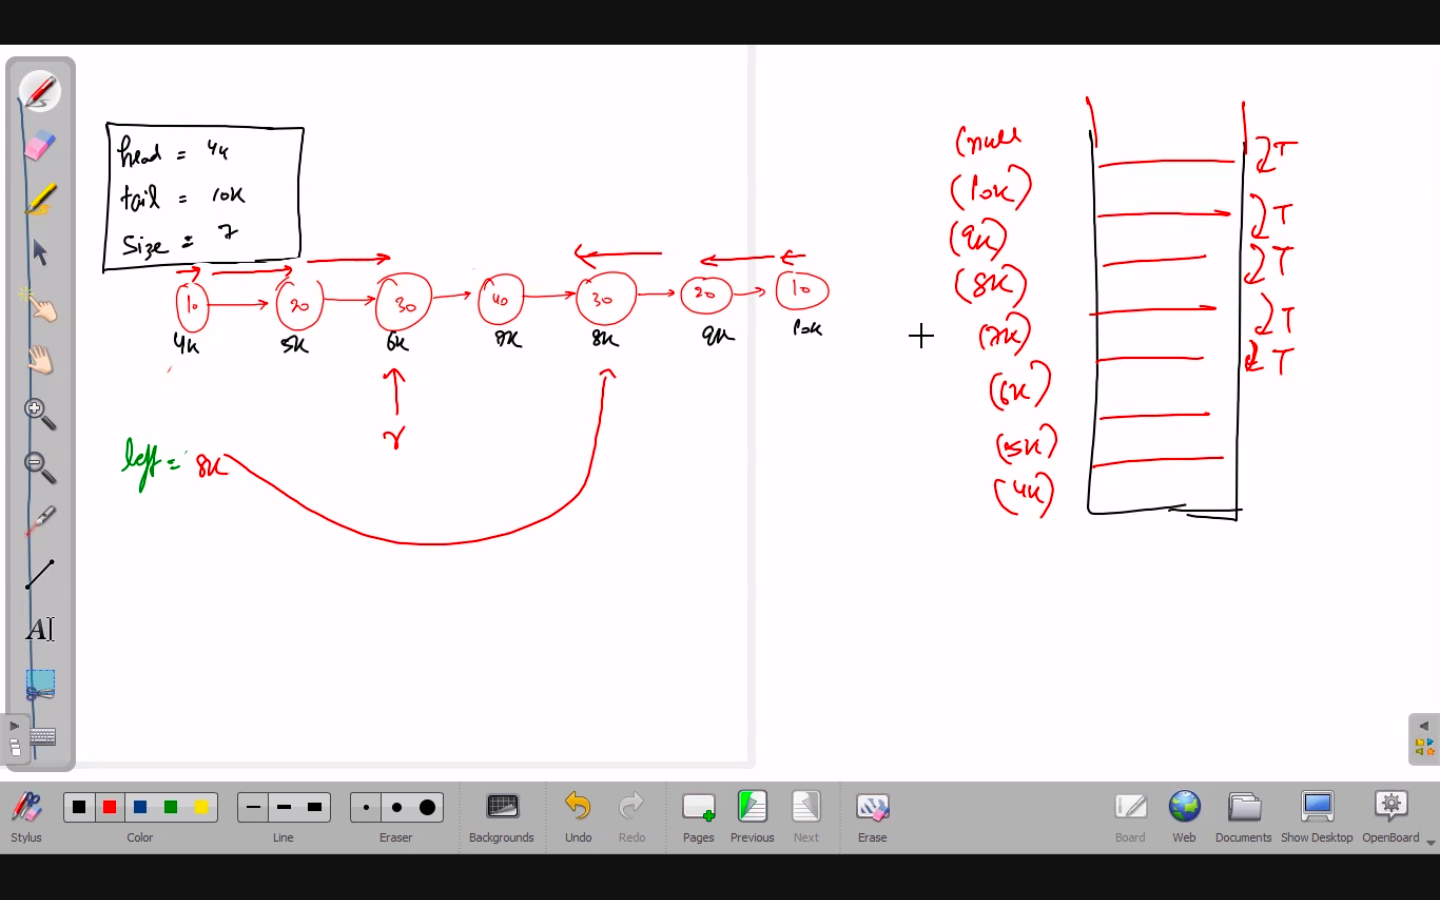 head = 4K
tail = 10K
size = 7
10 20 30 40 30 20 10
4K 5K 6K 7K 8K 9K 10K
r
left = 8K
(null
(10K)
(9K)
(8K)
(7K)
(6K)
(5K)
(4K)
T
T
T
T
T
A
Stylus
Color
Line
Eraser
Backgrounds
Undo
Redo
Pages
Previous
Next
Erase
Board
Web
Documents
Show Desktop
OpenBoard